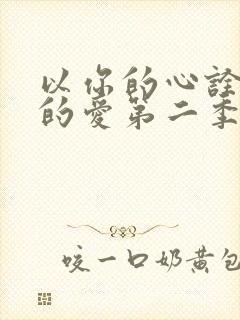 以你的心诠
的爱第二季
咬一口奶黄包